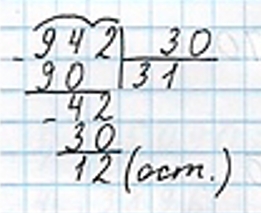 942 | 30
- 90 | 31
- 42
30
12 (ост.)